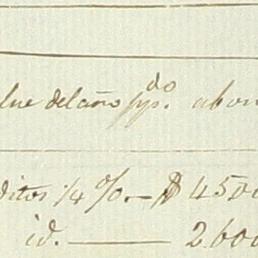 del año ppdo. abon
ditos 1/4 %. — $ 450
id. — 2600